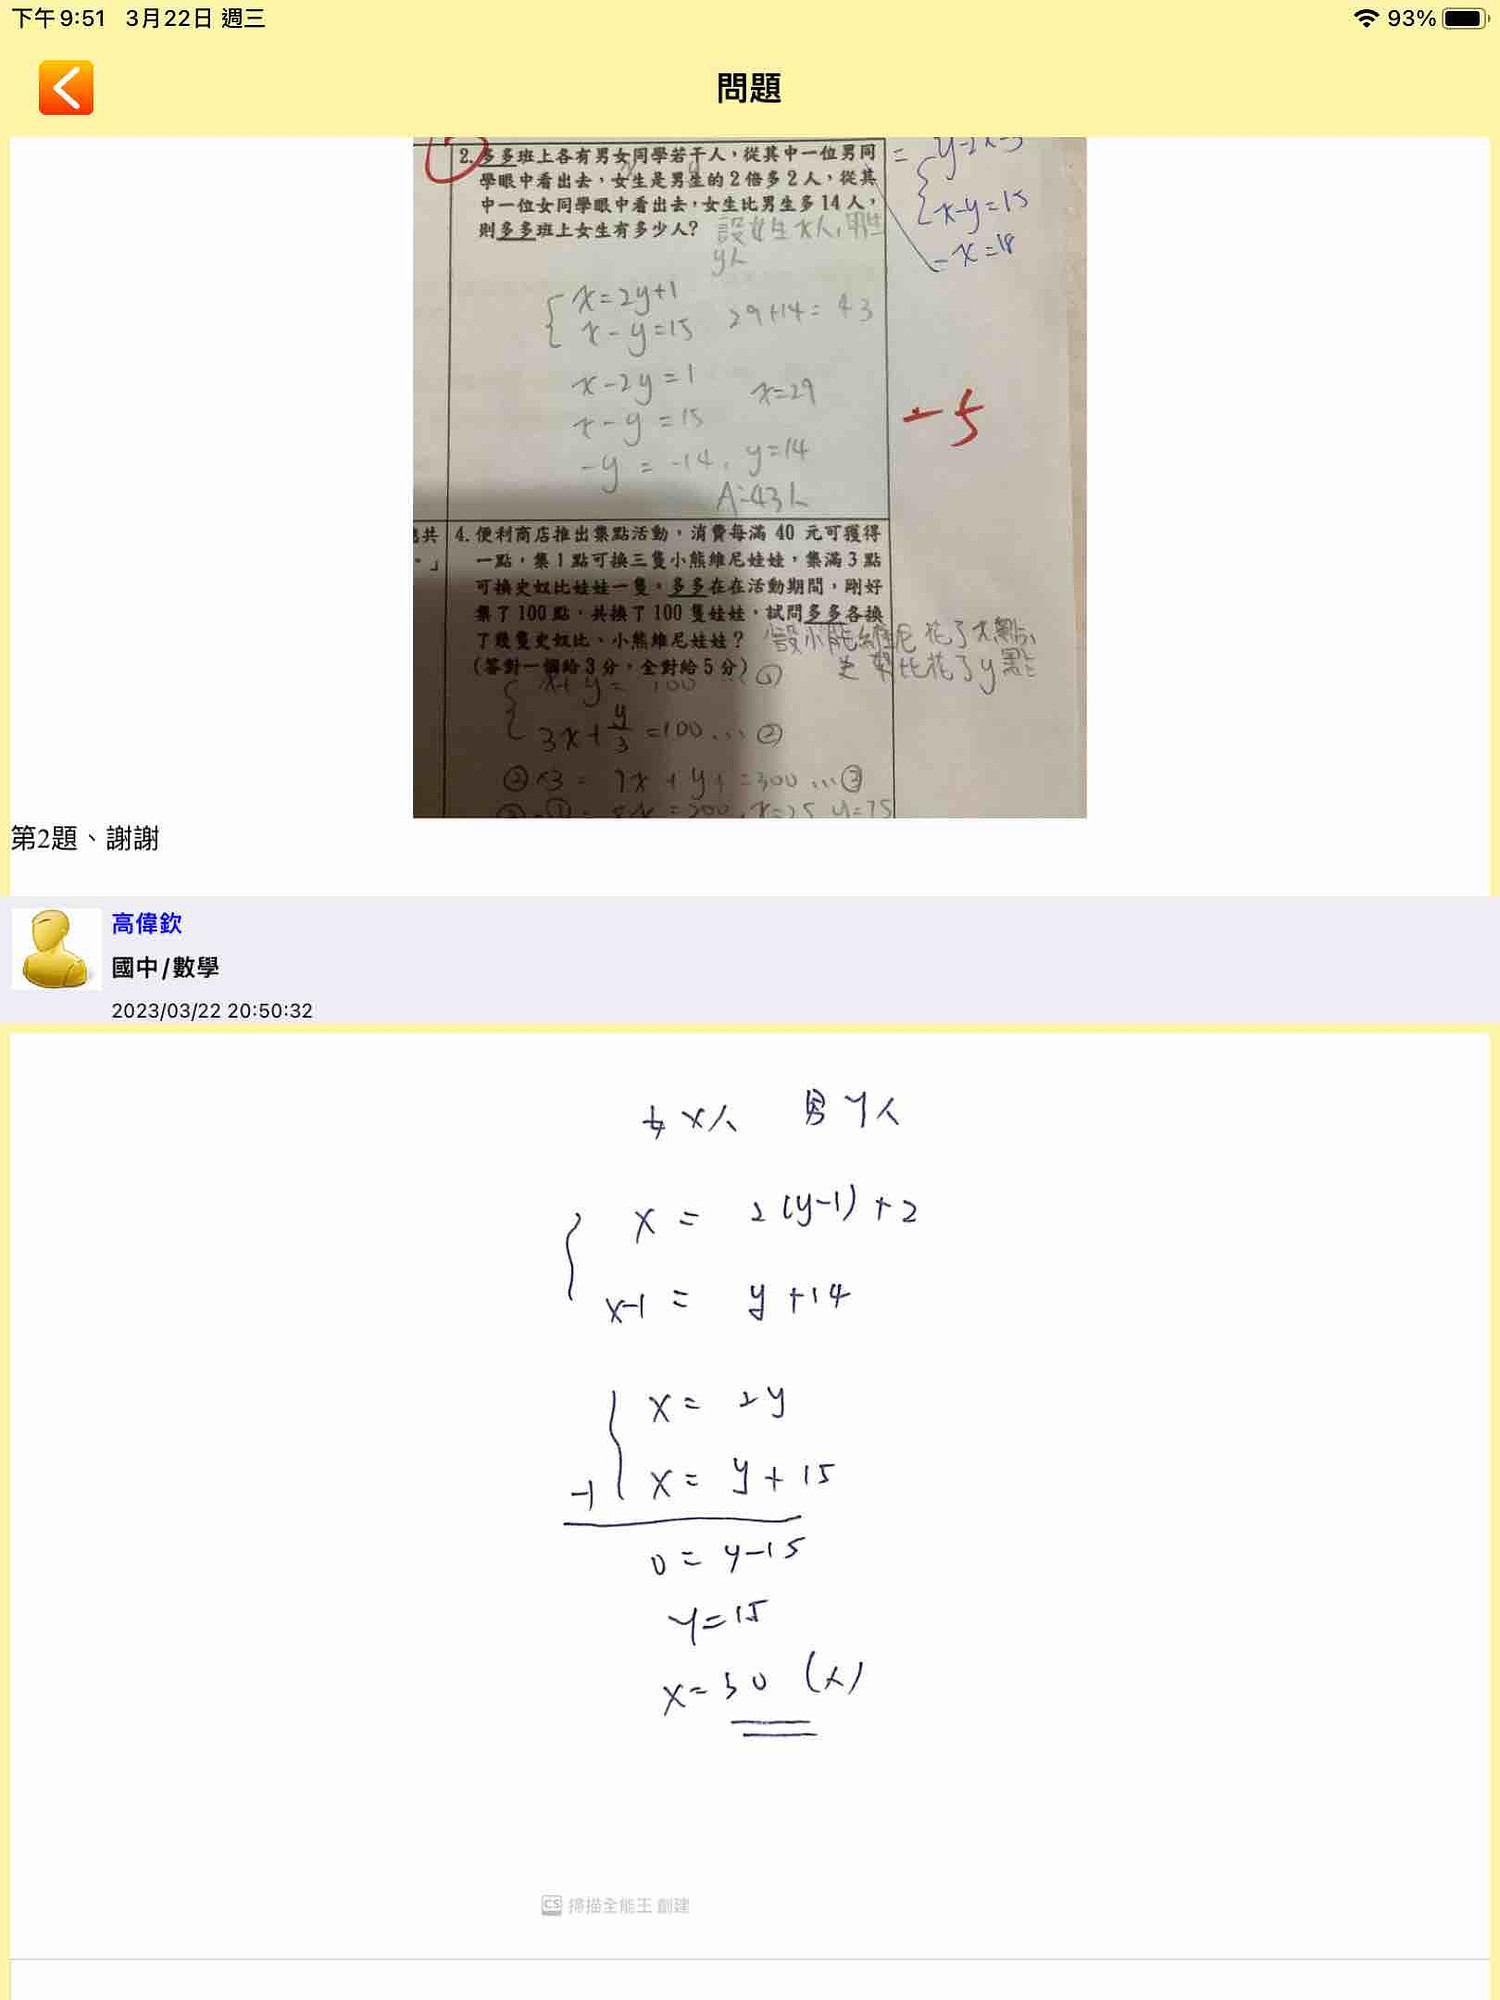 下午9:51 3月22日 週三
93%
問題
2. 多多班上各有男女同學若干人，從其中一位男同
學眼中看出去，女生是男生的2倍多2人，從其
中一位女同學眼中看出去，女生比男生多14人，
則多多班上女生有多少人？
設女生x人，男生
y人
x=2y+1
x-y=15
29+14=43
x-2y=1
x-y=15
x=29
-y=-14, y=14
A:43人
x-y=15
-x=18
-5
共
。」
4. 便利商店推出集點活動，消費每滿 40 元可獲得
一點，集1點可換三隻小熊維尼娃娃，集滿3點
可換史奴比娃娃一隻。多多在在活動期間，剛好
集了100點，共換了100隻娃娃，試問多多各換
了幾隻史奴比、小熊維尼娃娃？
(答對一個給3分，全對給5分)
設小熊維尼花了x點、
史努比花了y點
x+y=100…①
3x+y/3=100…②
②×3=9x+y=300…③
x=25 y=75
第2題、謝謝
高偉欽
國中/數學
2023/03/22 20:50:32
女x人 男y人
x=2(y-1)+2
x-1=y+14
x=2y
-) x=y+15
0=y-15
y=15
x=30 (人)
CS 掃描全能王 創建